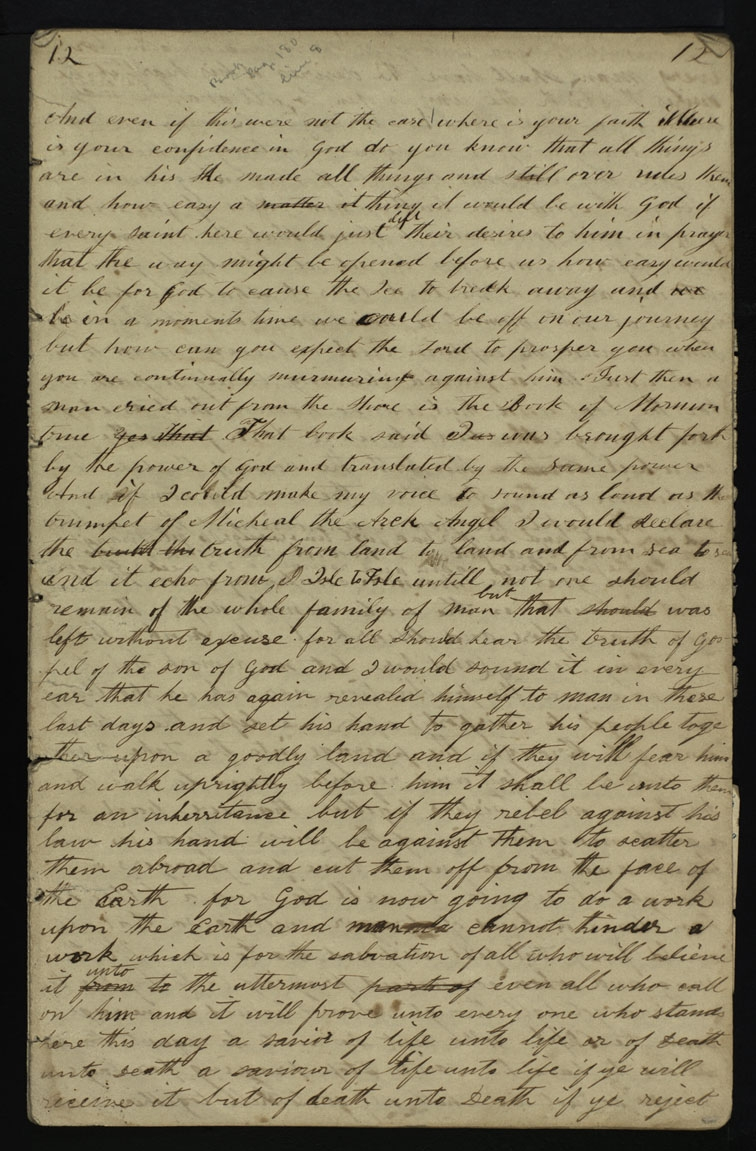 12 12
Book Page 180
line 8
And even if this were not the case where is your faith Where
is your confidence in God do you know that all things
are in his He made all things and still over rules them
and how easy a matter it thing it would be with God if
every saint here would just their desires to him in prayer
that the way might be opened before us how easy would
it be for God to cause the Ice to break away and we
be in a moments time we could be off on our journey
but how can you expect the Lord to prosper you when
you are continually murmuring against him . Just then a
man cried out from the Shore is the Book of Mormon
true yes that That book said I was brought forth
by the power of God and translated by the same power
And if I could make my voice to sound as loud as the
trumpet of Micheal the Arck Angel I would declare
the truth from land to land and from sea to sea
and it echo from I Isle to Isle untill not one should
but
remain of the whole family of man that should was
left without excuse . for all should hear the truth of Gos
pel of the son of God and I would sound it in every
ear that he has again revealed himself to man in these
last days and set his hand to gather his people toge
ther upon a goodly land and if they will fear him
and walk uprightly before him it shall be unto them
for an inherritance but if they rebel against his
law his hand will be against them to scatter
them abroad and cut them off from the face of
the Earth . for God is now going to do a work
upon the Earth and man cannot hinder a
work which is for the salvation of all who will believe
unto
it from to the uttermost parts of even all who call
on him and it will prove unto every one who stands
here this day a savior of life unto life or of Death
unto death a saviour of life unto life if ye will
receive it but of death unto Death if ye reject